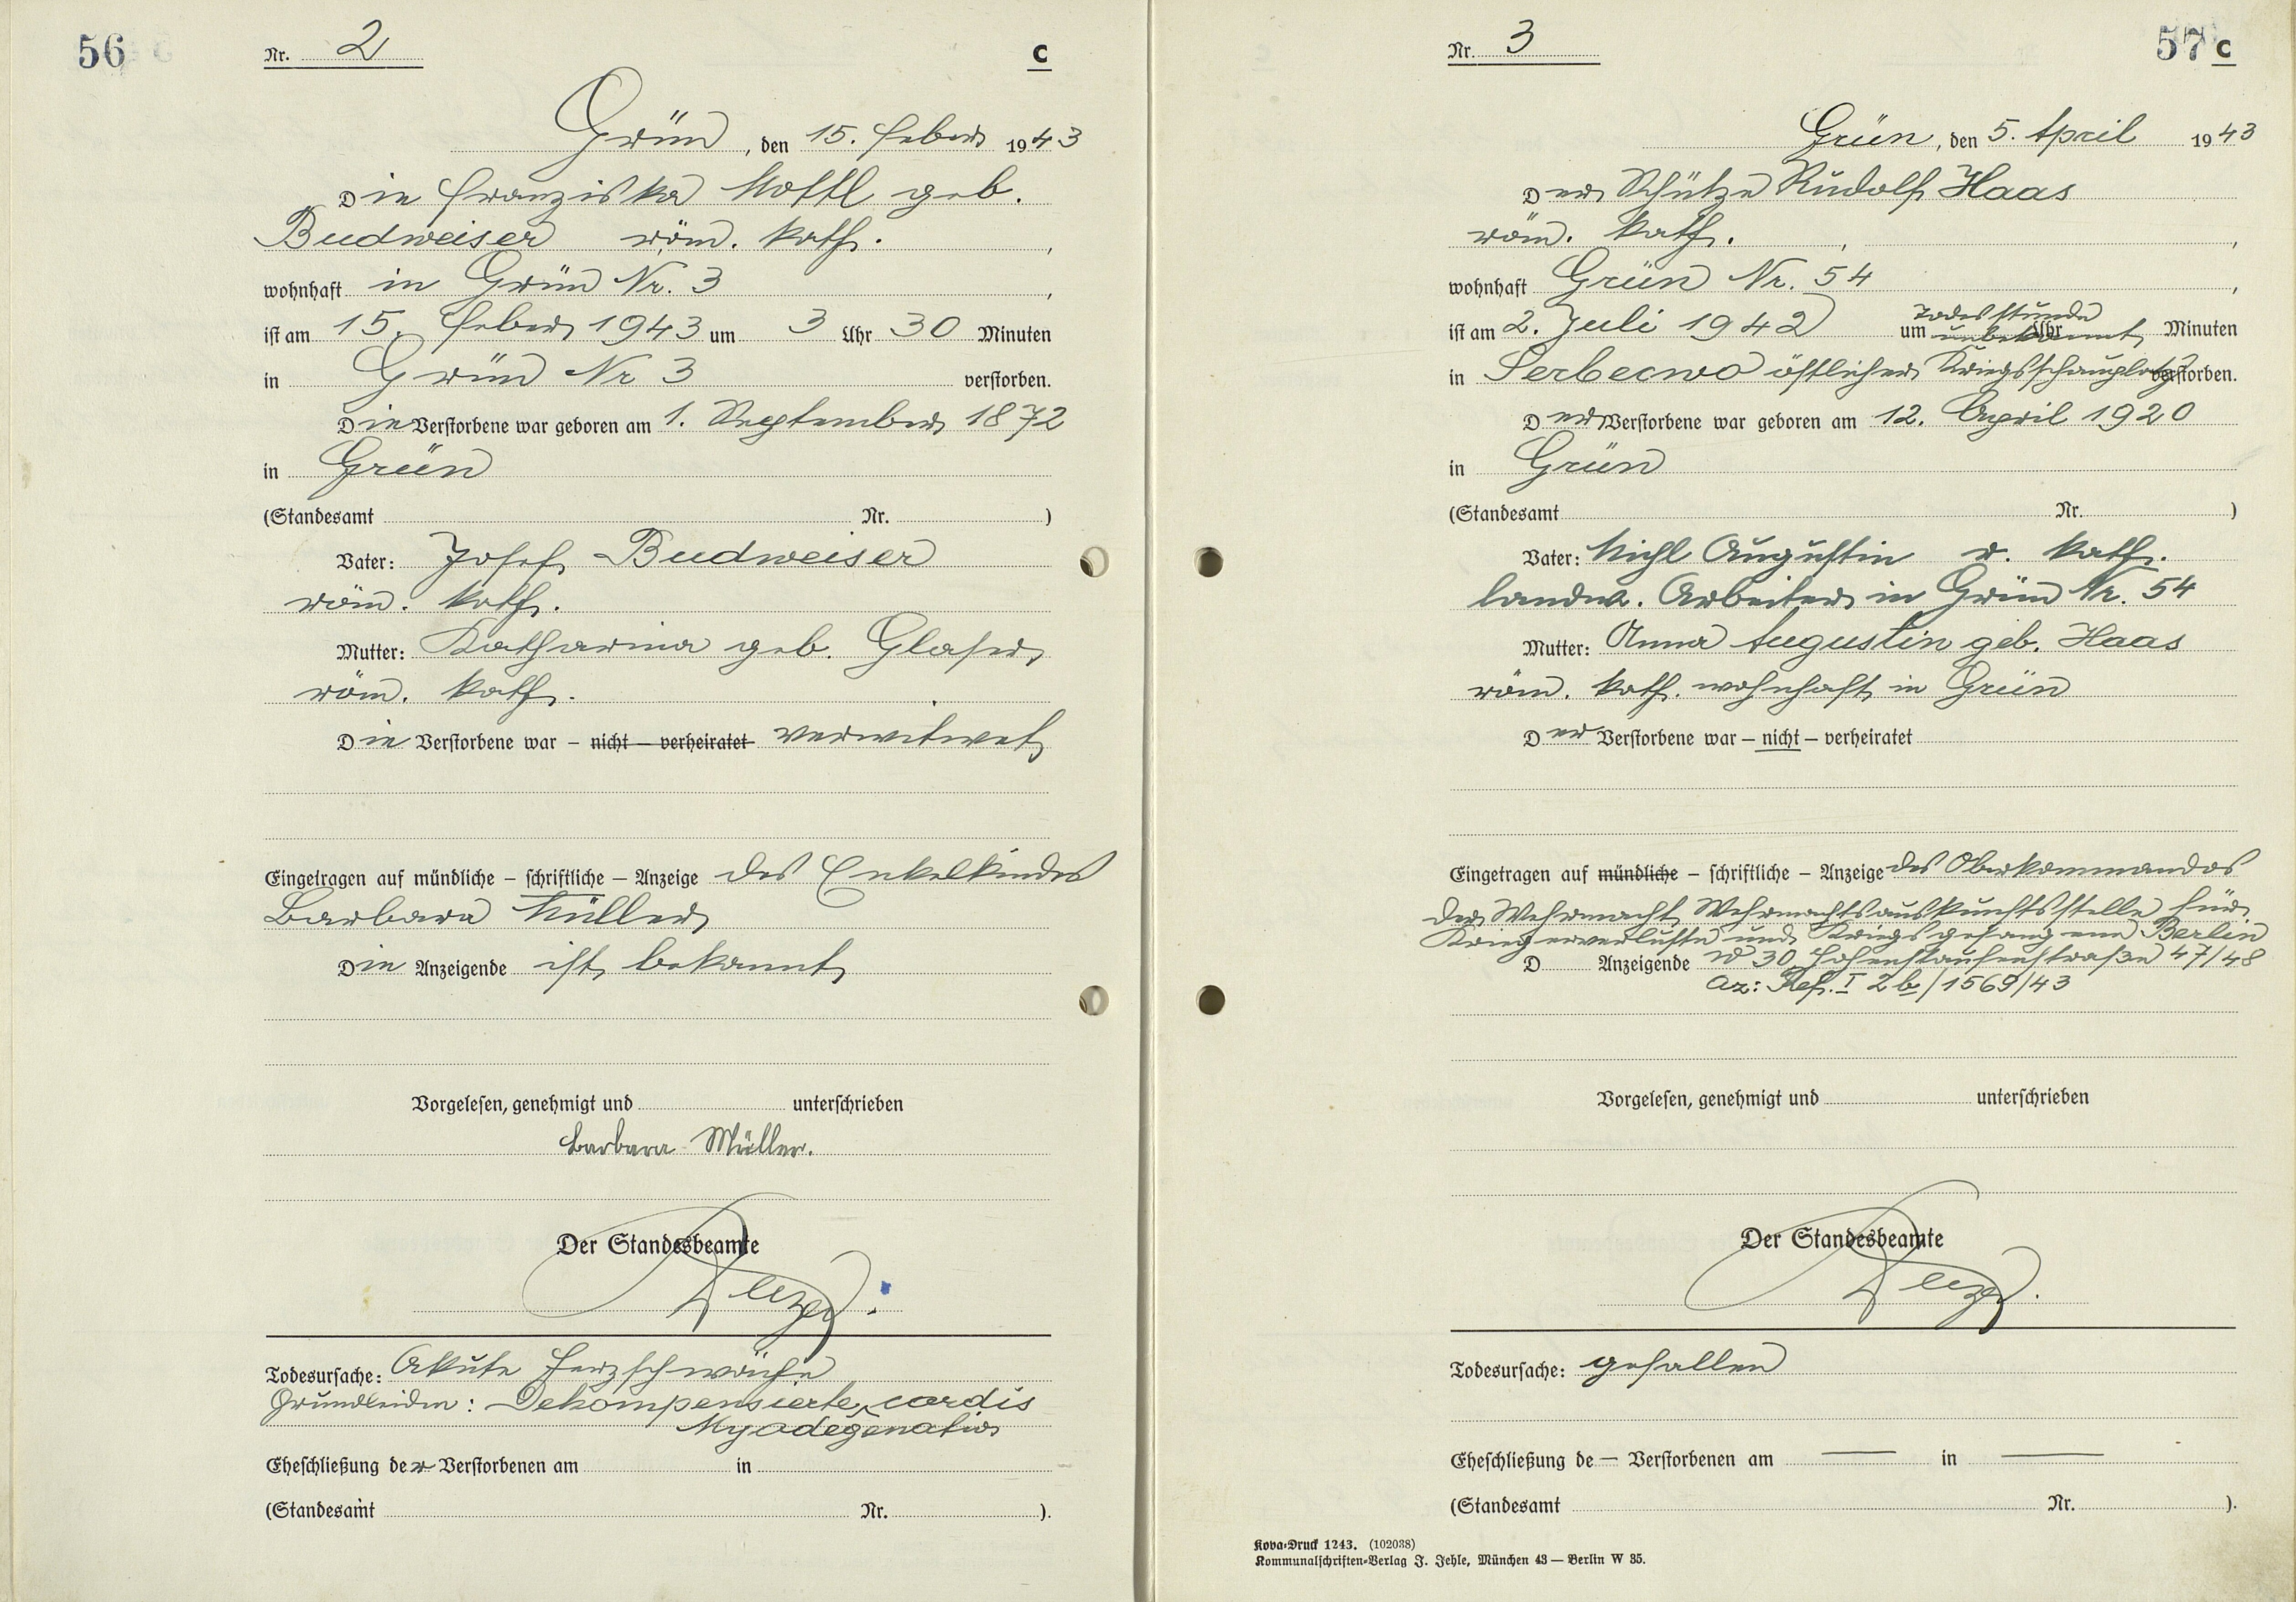 56
Nr. 2 C
Grün, den 15. Feber 1943
Die Franziska Mottl geb.
Budweiser röm. kath.,
wohnhaft in Grün Nr. 3,
ist am 15. Feber 1943 um 3 Uhr 30 Minuten
in Grün Nr 3 verstorben.
Die Verstorbene war geboren am 1. September 1872
in Grün
(Standesamt Nr. )
Vater: Josef Budweiser
röm. kath.
Mutter: Katharina geb. Glaser
röm. kath.
Die Verstorbene war – nicht – verheiratet verwitwet
Eingetragen auf mündliche – schriftliche – Anzeige des Enkelkindes
Barbara Müller
Die Anzeigende ist bekannt
Vorgelesen, genehmigt und unterschrieben
Barbara Müller.
Der Standesbeamte
Todesursache: Akute Herzschwäche
Grundleiden: Dekompensierte cordis
Myodegenatio
Eheschließung der Verstorbenen am in
(Standesamt Nr. ).
Nr. 3 57 C
Grün, den 5. April 1943
Der Schütze Rudolf Haas
röm. kath.,
wohnhaft Grün Nr. 54,
ist am 2. Juli 1942 um Todesstunde unbekannt Uhr Minuten
in Serbecwo östlicher Kriegsschauplatz verstorben.
Der Verstorbene war geboren am 12. April 1920
in Grün
(Standesamt Nr. )
Vater: Michl Augustin r. kath.
landw. Arbeiter in Grün Nr. 54
Mutter: Anna Augustin geb. Haas
röm. kath. wohnhaft in Grün
Der Verstorbene war – nicht – verheiratet
Eingetragen auf mündliche – schriftliche – Anzeige des Oberkommandos
der Wehrmacht Wehrmachtsauskunftsstelle für
Kriegerverluste und Kriegsgefangene Berlin
D Anzeigende W 30 Hohenstaufenstraße 47/48
Az: Ref. I 2b/1569/43
Vorgelesen, genehmigt und unterschrieben
Der Standesbeamte
Todesursache: gefallen
Eheschließung de — Verstorbenen am — in —
(Standesamt Nr. ).
Kova-Druck 1243. (102038)
Kommunalschriften-Verlag J. Jehle, München 43 — Berlin W 35.